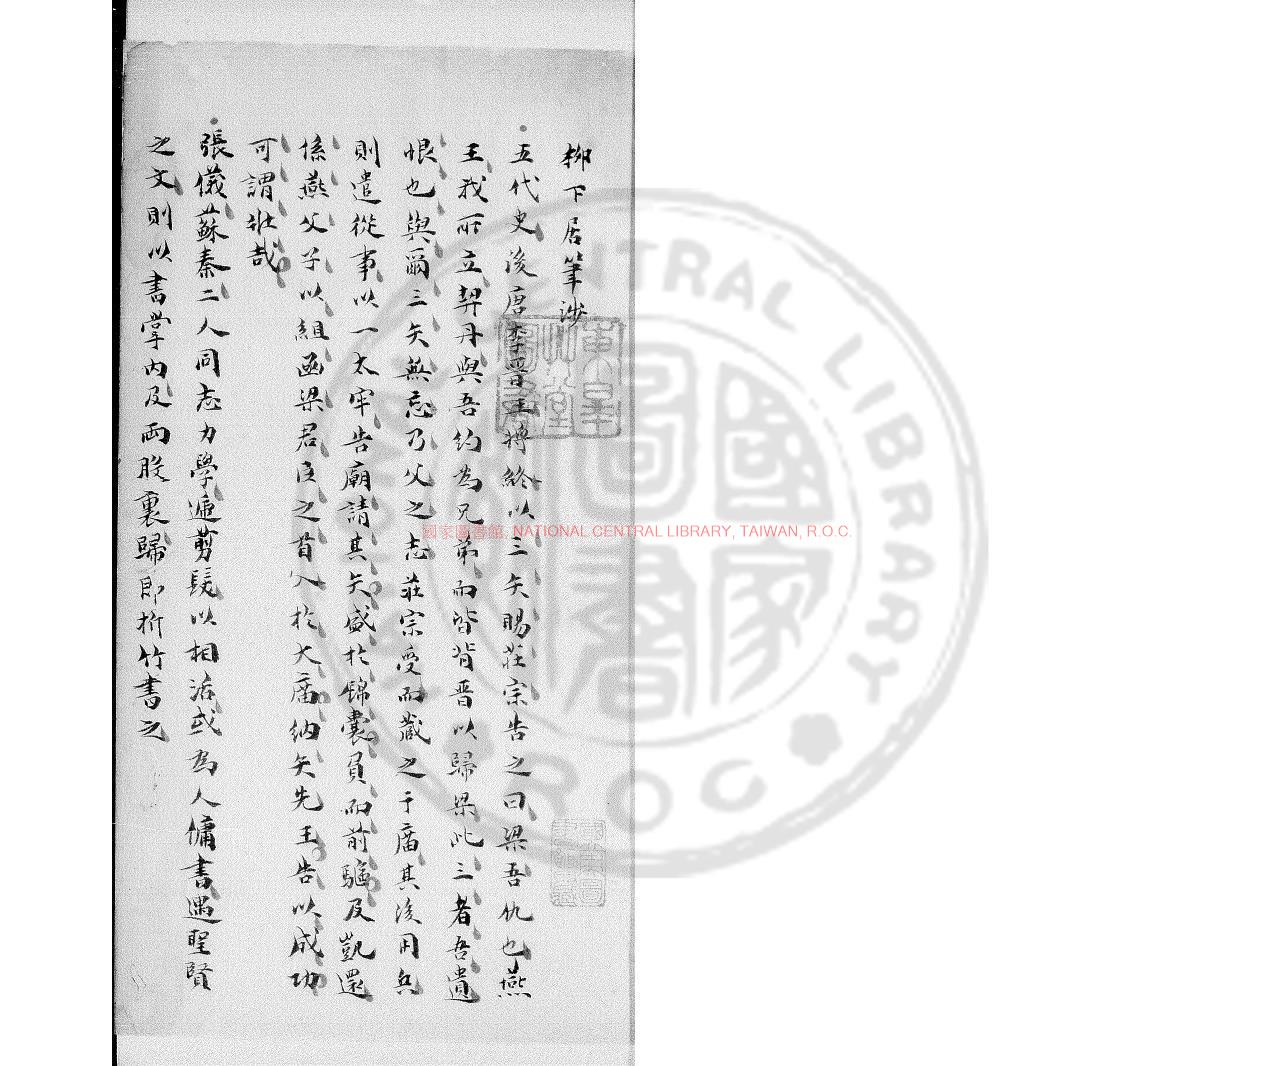 柳下居筆涉
五代史後唐李晋王將終以三矢賜莊宗告之曰梁吾仇也燕
王我所立契丹與吾約為兄弟而皆背晋以歸梁此三者吾遺
恨也與爾三矢無忘乃父之志莊宗受而藏之于庿其後用兵
則遣從事以一太牢告廟請其矢盛於錦囊負而前驅及凱還
係燕父子以組函梁君臣之首入於大庿納矢先王告以成功
可謂壯哉
張儀蘇秦二人同志力學遞剪髮以相活或為人傭書遇聖賢
之文則以書掌內及兩股裏歸即折竹書之
國家圖書館, NATIONAL CENTRAL LIBRARY, TAIWAN, R.O.C.
NATIONAL CENTRAL LIBRARY
國家圖書館
R.O.C.